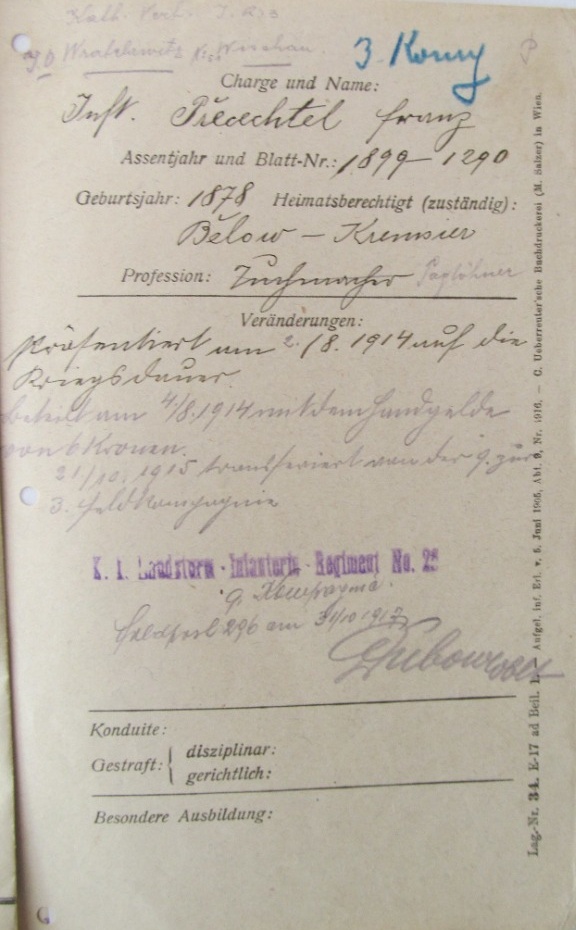 Kath. Verh. I. R. 3
Wratzlawitz Wischau.
3. Komp
Charge und Name:
Inft. Přecechtel Franz
Assentjahr und Blatt-Nr.: 1899 - 1290
Geburtsjahr: 1878 Heimatsberechtigt (zuständig):
Bělow - Kremsier
Profession: Tuchmacher Taglöhner
Veränderungen:
Präsentiert am 2./8. 1914 auf die
Kriegsdauer.
Beteilt am 4/8. 1914 mit dem Handgelde
von 6 Kronen.
21/10. 1915 transferiert von der 9. zur
3. Feldkompagnie
K. k. Landsturm-Infanterie-Regiment No. 25
9. Kompagnie.
Feldpost 296 am 31/10 1917
Konduite:
Gestraft: disziplinar:
gerichtlich:
Besondere Ausbildung:
Lag.-Nr. 34. E-17 ad Beil. Aufgel. inf. Erl. v. 5. Juni 1905, Abt. 9, Nr. 1916. — C. Ueberreuter'sche Buchdruckerei (M. Salzer) in Wien.